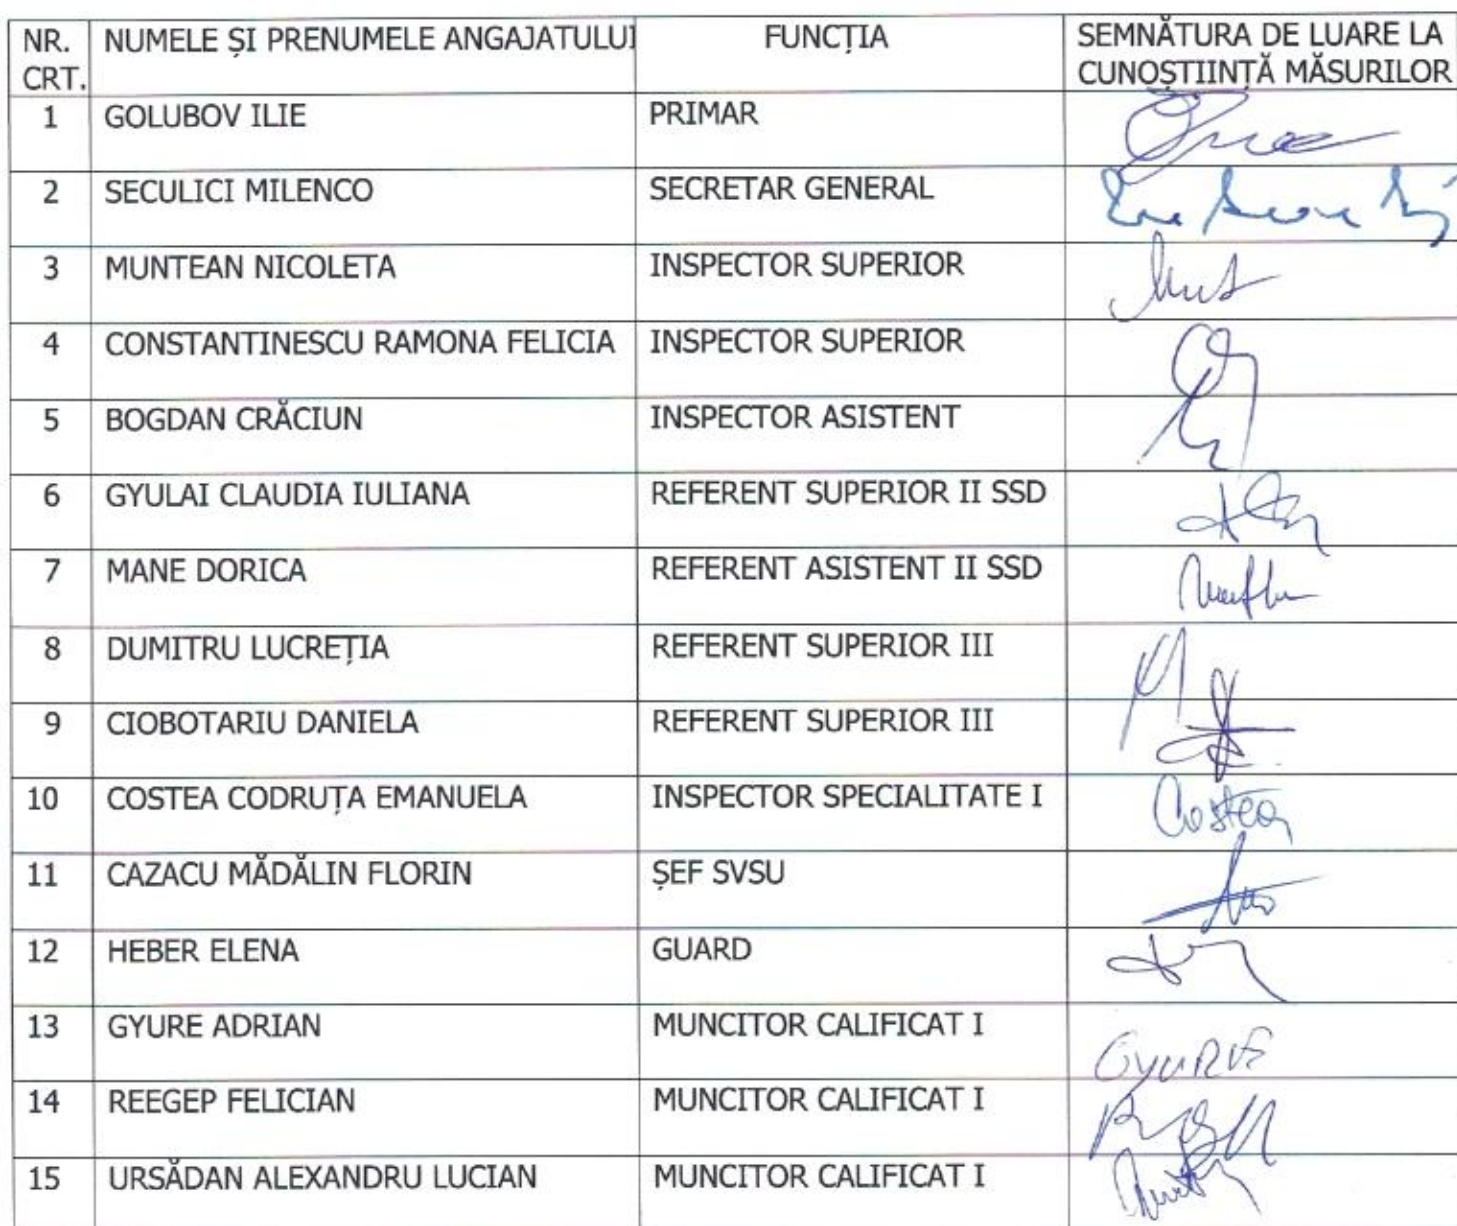 NR. CRT. NUMELE ȘI PRENUMELE ANGAJATULUI FUNCȚIA SEMNĂTURA DE LUARE LA CUNOȘTIINȚĂ MĂSURILOR
1 GOLUBOV ILIE PRIMAR
2 SECULICI MILENCO SECRETAR GENERAL
3 MUNTEAN NICOLETA INSPECTOR SUPERIOR
4 CONSTANTINESCU RAMONA FELICIA INSPECTOR SUPERIOR
5 BOGDAN CRĂCIUN INSPECTOR ASISTENT
6 GYULAI CLAUDIA IULIANA REFERENT SUPERIOR II SSD
7 MANE DORICA REFERENT ASISTENT II SSD
8 DUMITRU LUCREȚIA REFERENT SUPERIOR III
9 CIOBOTARIU DANIELA REFERENT SUPERIOR III
10 COSTEA CODRUȚA EMANUELA INSPECTOR SPECIALITATE I Costea
11 CAZACU MĂDĂLIN FLORIN ȘEF SVSU
12 HEBER ELENA GUARD
13 GYURE ADRIAN MUNCITOR CALIFICAT I GYURE
14 REEGEP FELICIAN MUNCITOR CALIFICAT I
15 URSĂDAN ALEXANDRU LUCIAN MUNCITOR CALIFICAT I